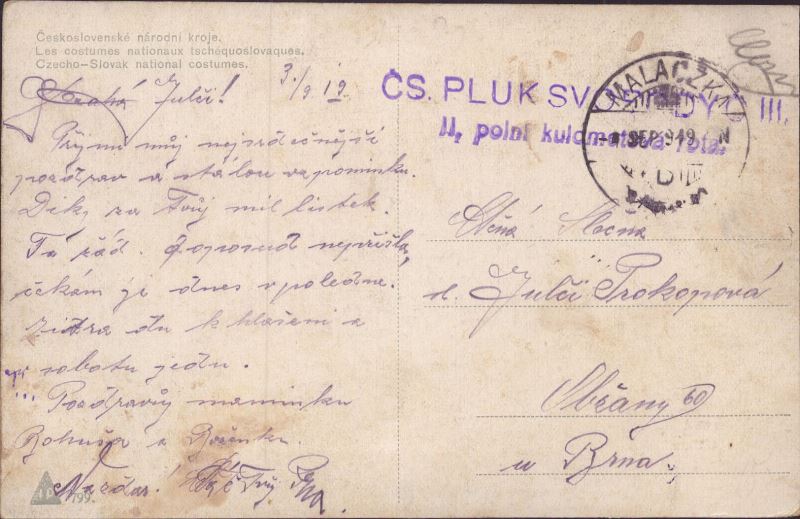 Československé národní kroje.
Les costumes nationaux tschéquoslovaques.
Czecho-Slovak national costumes.
3./9 19
Drahá Julči!
Přijmi můj nejsrdečnější
pozdrav a stálou vzpomínku.
Dík za Tvůj milý lístek.
Ta řád. doposud nepřišla,
čekám ji dnes v poledne.
Zítra du k hlášení a
sobotu jedu.
Pozdravůj maminku
Bohuša a Boženku.
Nazdar! Tvůj
799.
ČS. PLUK SVOBODY III.
II. polní kulometová rota.
MALACZKA
SEP. 919
Ctěná Slečna
sl. Julči Prokopová
Obřany 60
u Brna.